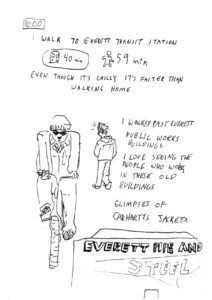 6:00
I WALK TO EVERETT TRANSIT STATION
40 min
59 min
EVEN THOUGH IT'S CHILLY IT'S FASTER THAN
WALKING HOME
I WALKED PAST EVERETT
PUBLIC WORKS
BUILDINGS
I LOVE SEEING THE
PEOPLE WHO WORK
IN THESE OLD
BUILDINGS
GLIMPSES OF
CARHARTTS JACKETS
EVERETT PIPE AND
STEEL